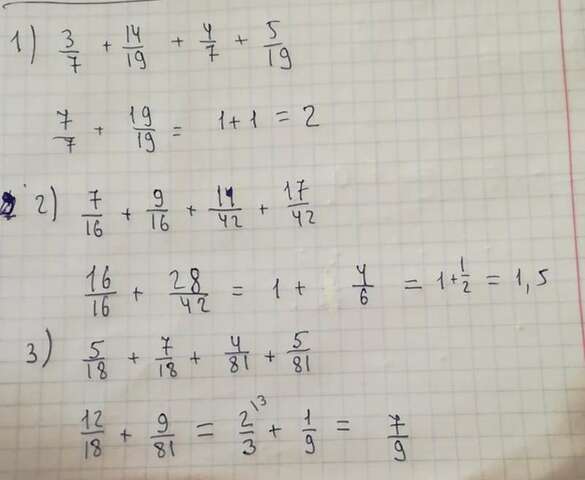 1) 3/7 + 14/19 + 4/7 + 5/19
7/7 + 19/19 = 1+1 = 2
2) 7/16 + 9/16 + 11/42 + 17/42
16/16 + 28/42 = 1 + 4/6 = 1+1/2 = 1,5
3) 5/18 + 7/18 + 4/81 + 5/81
12/18 + 9/81 = 2\3/3 + 1/9 = 7/9